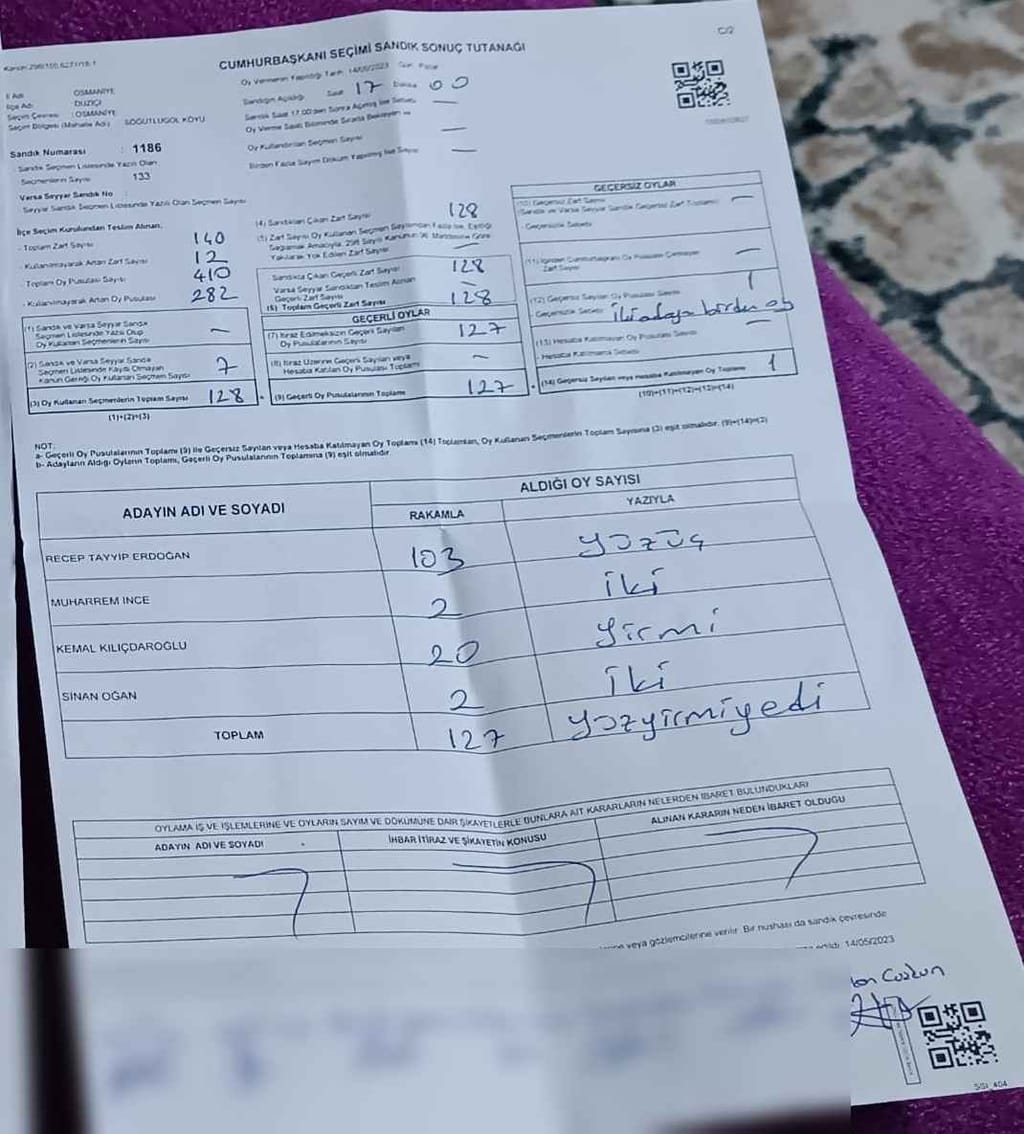 C/2
CUMHURBAŞKANI SEÇİMİ SANDIK SONUÇ TUTANAĞI
Oy Vermenin Yapıldığı Tarih: 14/05/2023 Gün: Pazar
Sandığın Açıldığı Saat 17 Dakika 00
Sandık Saat 17.00'den Sonra Açılmış İse Sebebi —
Oy Kullandırılan Seçmen Sayısı —
Birden Fazla Sayım Döküm Yapılmış İse Sayısı —
İl Adı OSMANİYE
İlçe Adı DÜZİÇİ
Seçim Çevresi : OSMANİYE
Seçim Bölgesi (Mahalle Adı) SÖĞÜTLÜGÖL KÖYÜ
Sandık Numarası : 1186
Sandık Seçmen Listesinde Yazılı Olan
Seçmenlerin Sayısı 133
Varsa Seyyar Sandık No
Seyyar Sandık Seçmen Listesinde Yazılı Olan Seçmen Sayısı
İlçe Seçim Kurulundan Teslim Alınan;
- Toplam Zarf Sayısı 140
- Kullanılmayarak Artan Zarf Sayısı 12
- Toplam Oy Pusulası Sayısı 410
- Kullanılmayarak Artan Oy Pusulası 282
(1) Sandık ve Varsa Seyyar Sandık
Seçmen Listesinde Yazılı Olup
Oy Kullanan Seçmenlerin Sayısı —
(2) Sandık ve Varsa Seyyar Sandık
Seçmen Listesinde Kaydı Olmayan
Kanun Gereği Oy Kullanan Seçmen Sayısı 7
(3) Oy Kullanan Seçmenlerin Toplam Sayısı 128
(1)+(2)=(3)
(4) Sandıktan Çıkan Zarf Sayısı 128
Sandıkta Çıkan Geçerli Zarf Sayısı 128
Varsa Seyyar Sandıktan Teslim Alınan
Geçerli Zarf Sayısı —
(6) Toplam Geçerli Zarf Sayısı 128
GEÇERLİ OYLAR
(7) İtiraz Edilmeksizin Geçerli Sayılan
Oy Pusulalarının Sayısı 127
(8) İtiraz Üzerine Geçerli Sayılan veya
Hesaba Katılan Oy Pusulası Toplamı —
(9) Geçerli Oy Pusulalarının Toplamı 127
GEÇERSİZ OYLAR
(10) Geçersiz Zarf Sayısı —
- Geçersizlik Sebebi
Zarf Sayısı —
(12) Geçersiz Sayılan Oy Pusulası Sayısı 1
- Geçersizlik Sebebi
(13) Hesaba Katılmayan Oy Pusulası Sayısı —
- Hesaba Katılmama Sebebi
(14) Geçersiz Sayılan veya Hesaba Katılmayan Oy Toplamı 1
(10)+(11)+(12)+(13)=(14)
NOT:
a- Geçerli Oy Pusulalarının Toplamı (9) ile Geçersiz Sayılan veya Hesaba Katılmayan Oy Toplamı (14) Toplamları, Oy Kullanan Seçmenlerin Toplam Sayısına (3) eşit olmalıdır. (9)+(14)=(3)
b- Adayların Aldığı Oyların Toplamı, Geçerli Oy Pusulalarının Toplamına (9) eşit olmalıdır.
ADAYIN ADI VE SOYADI ALDIĞI OY SAYISI
RAKAMLA YAZIYLA
RECEP TAYYİP ERDOĞAN 103 yüzüç
MUHARREM İNCE 2 iki
KEMAL KILIÇDAROĞLU 20 yirmi
SİNAN OĞAN 2 iki
TOPLAM 127 yüzyirmiyedi
OYLAMA İŞ VE İŞLEMLERİNE VE OYLARIN SAYIM VE DÖKÜMÜNE DAİR ŞİKAYETLERLE BUNLARA AİT KARARLARIN NELERDEN İBARET BULUNDUKLARI
ADAYIN ADI VE SOYADI İHBAR İTİRAZ VE ŞİKAYETİN KONUSU ALINAN KARARIN NEDEN İBARET OLDUĞU
veya gözlemcilerine verilir. Bir nüshası da sandık çevresinde
14/05/2023
Coşkun